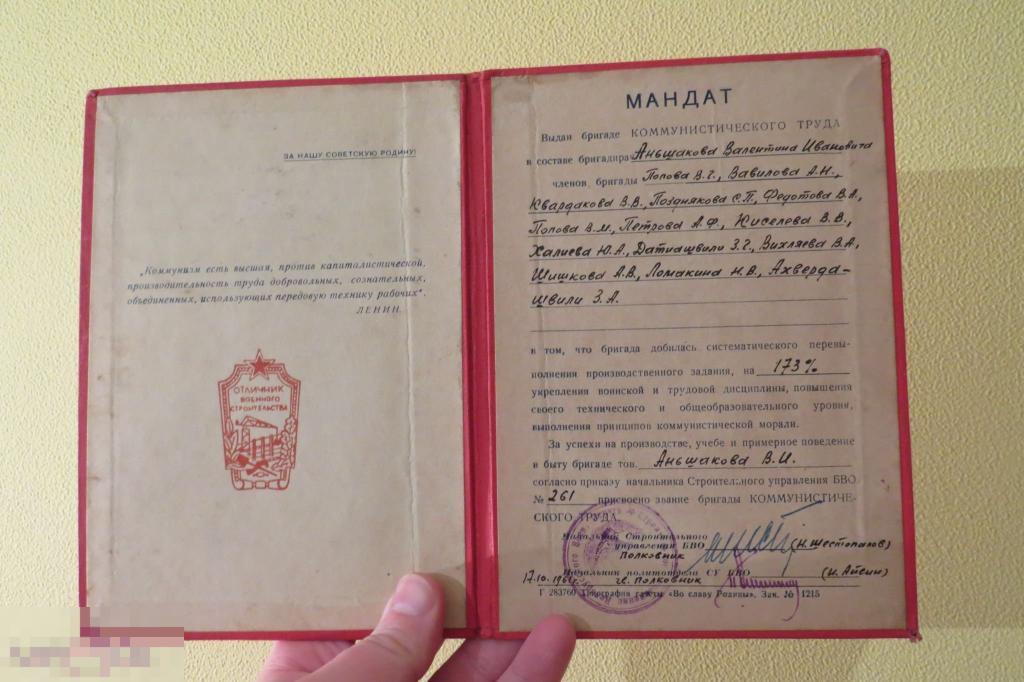 ЗА НАШУ СОВЕТСКУЮ РОДИНУ!
„Коммунизм есть высшая, против капиталистической,
производительность труда добровольных, сознательных,
объединенных, использующих передовую технику рабочих".
ЛЕНИН.
ОТЛИЧНИК
ВОЕННОГО
СТРОИТЕЛЬСТВА
МАНДАТ
Выдан бригаде КОММУНИСТИЧЕСКОГО ТРУДА
в составе бригадира Аньшакова Валентина Ивановича
членов бригады Попова В.Г., Вавилова А.Н.,
Квардакова В.В., Позднякова С.П., Федотова В.А.,
Попова В.М., Петрова А.Ф., Киселева В.В.
Халиева Ю.А., Датиашвили З.Г., Вихляева В.А,
Шишкова А.В., Ломакина Н.В., Ахверда-
швили З.А.
в том, что бригада добилась систематического перевы-
полнения производственного задания, на 173%
укрепления воинской и трудовой дисциплины, повышения
своего технического и общеобразовательного уровня,
выполнения принципов коммунистической морали.
За успехи на производстве, учебе и примерное поведение
в быту бригаде тов. Аньшакова В.И.
согласно приказу начальника Строительного управления БВО
№ 261 присвоено звание бригады КОММУНИСТИЧЕ-
СКОГО ТРУДА.
Начальник Строительного
управления БВО
полковник (Н. Шестопалов)
Начальник политотдела СУ БВО
17.10.196 полковник (И. Айсин)
Г 283760 Типография газеты «Во славу Родины». Зак. № 1215